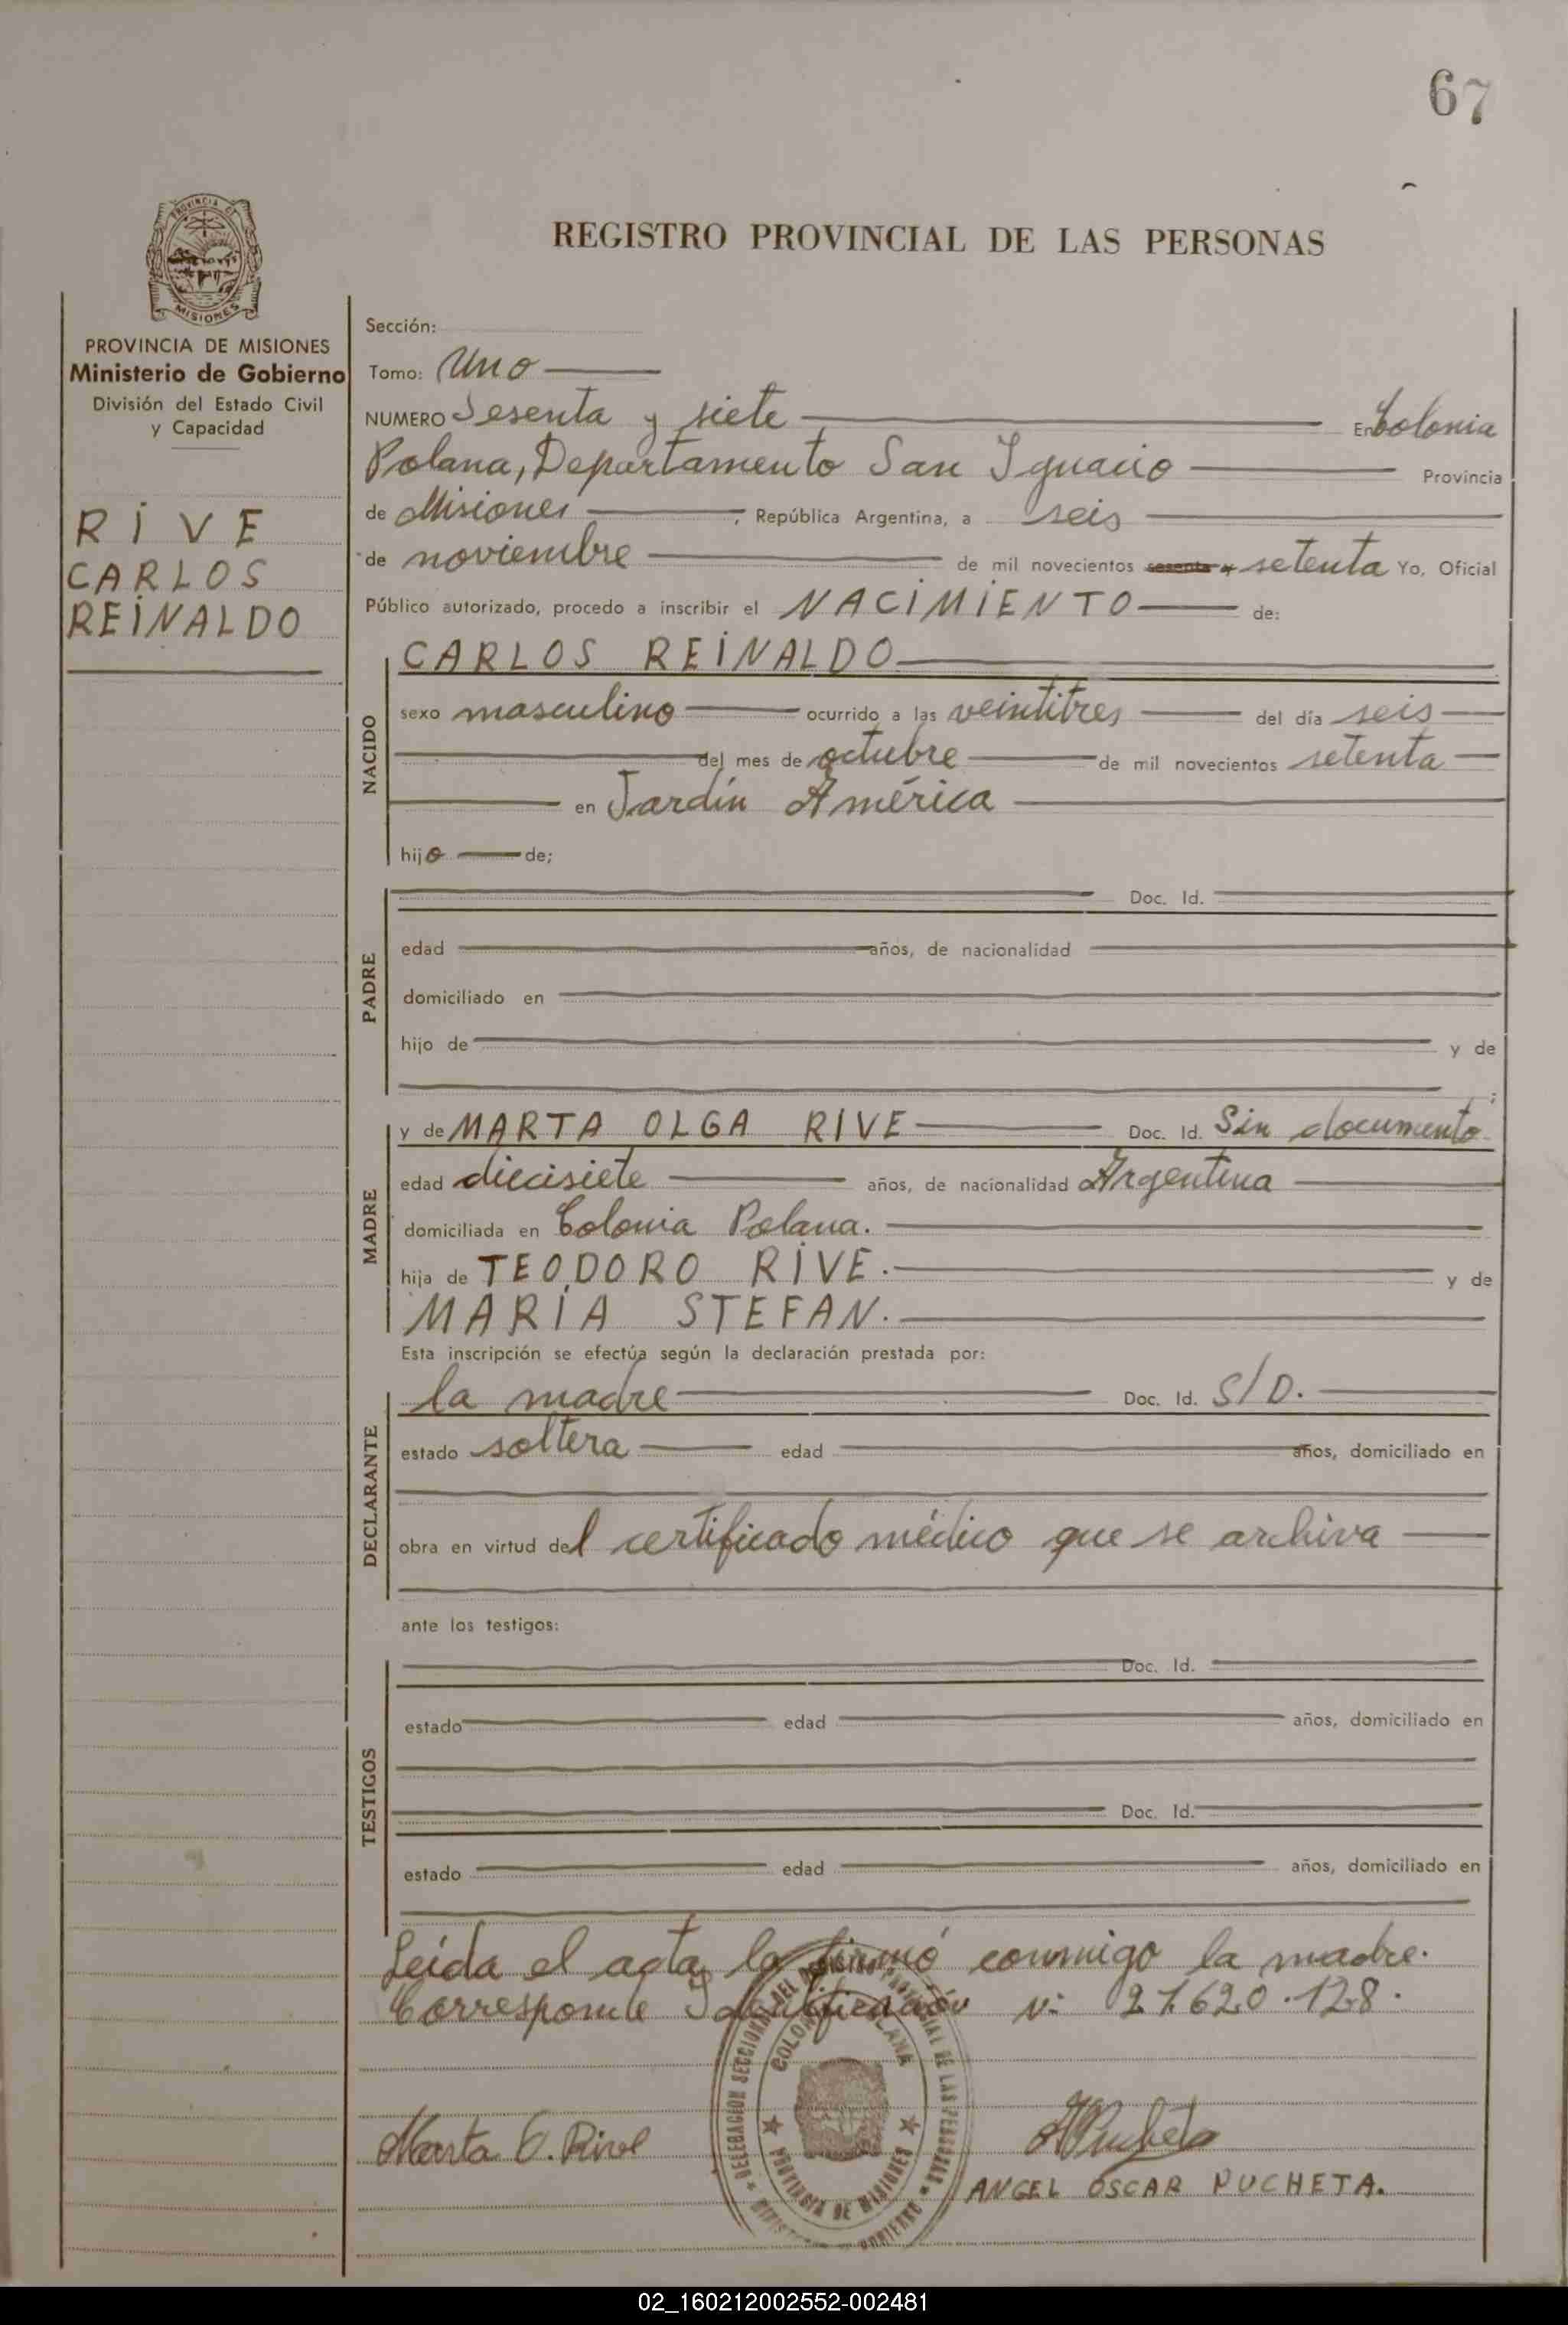 67
PROVINCIA DE
MISIONES
REGISTRO PROVINCIAL DE LAS PERSONAS
PROVINCIA DE MISIONES
Ministerio de Gobierno
División del Estado Civil
y Capacidad
RIVE
CARLOS
REINALDO
Sección:
Tomo: Uno
NUMERO Sesenta y siete En Colonia
Polana, Departamento San Ignacio Provincia
de Misiones, República Argentina, a seis
de noviembre de mil novecientos sesenta y setenta Yo, Oficial
Público autorizado, procedo a inscribir el NACIMIENTO de:
NACIDO
CARLOS REINALDO
sexo masculino ocurrido a las veintitres del día seis
del mes de octubre de mil novecientos setenta
en Jardín América
hijo de;
PADRE
Doc. Id.
edad años, de nacionalidad
domiciliado en
hijo de y de
;
MADRE
y de MARTA OLGA RIVE Doc. Id. Sin documento
edad diecisiete años, de nacionalidad Argentina
domiciliada en Colonia Polana.
hija de TEODORO RIVE. y de
MARÍA STEFAN.
Esta inscripción se efectúa según la declaración prestada por:
DECLARANTE
la madre Doc. Id. S/D.
estado soltera edad años, domiciliado en
obra en virtud del certificado médico que se archiva
ante los testigos:
TESTIGOS
Doc. Id.
estado edad años, domiciliado en
Doc. Id.
estado edad años, domiciliado en
Leída el acta, la firmó conmigo la madre.
Corresponde Identificación n: 21.620.128.
DELEGACION SECCIONAL DEL REGISTRO PROVINCIAL DE LAS PERSONAS
COLONIA POLANA
PROVINCIA DE MISIONES
Marta O. Rive
APucheta
ANGEL OSCAR PUCHETA.
02_160212002552-002481